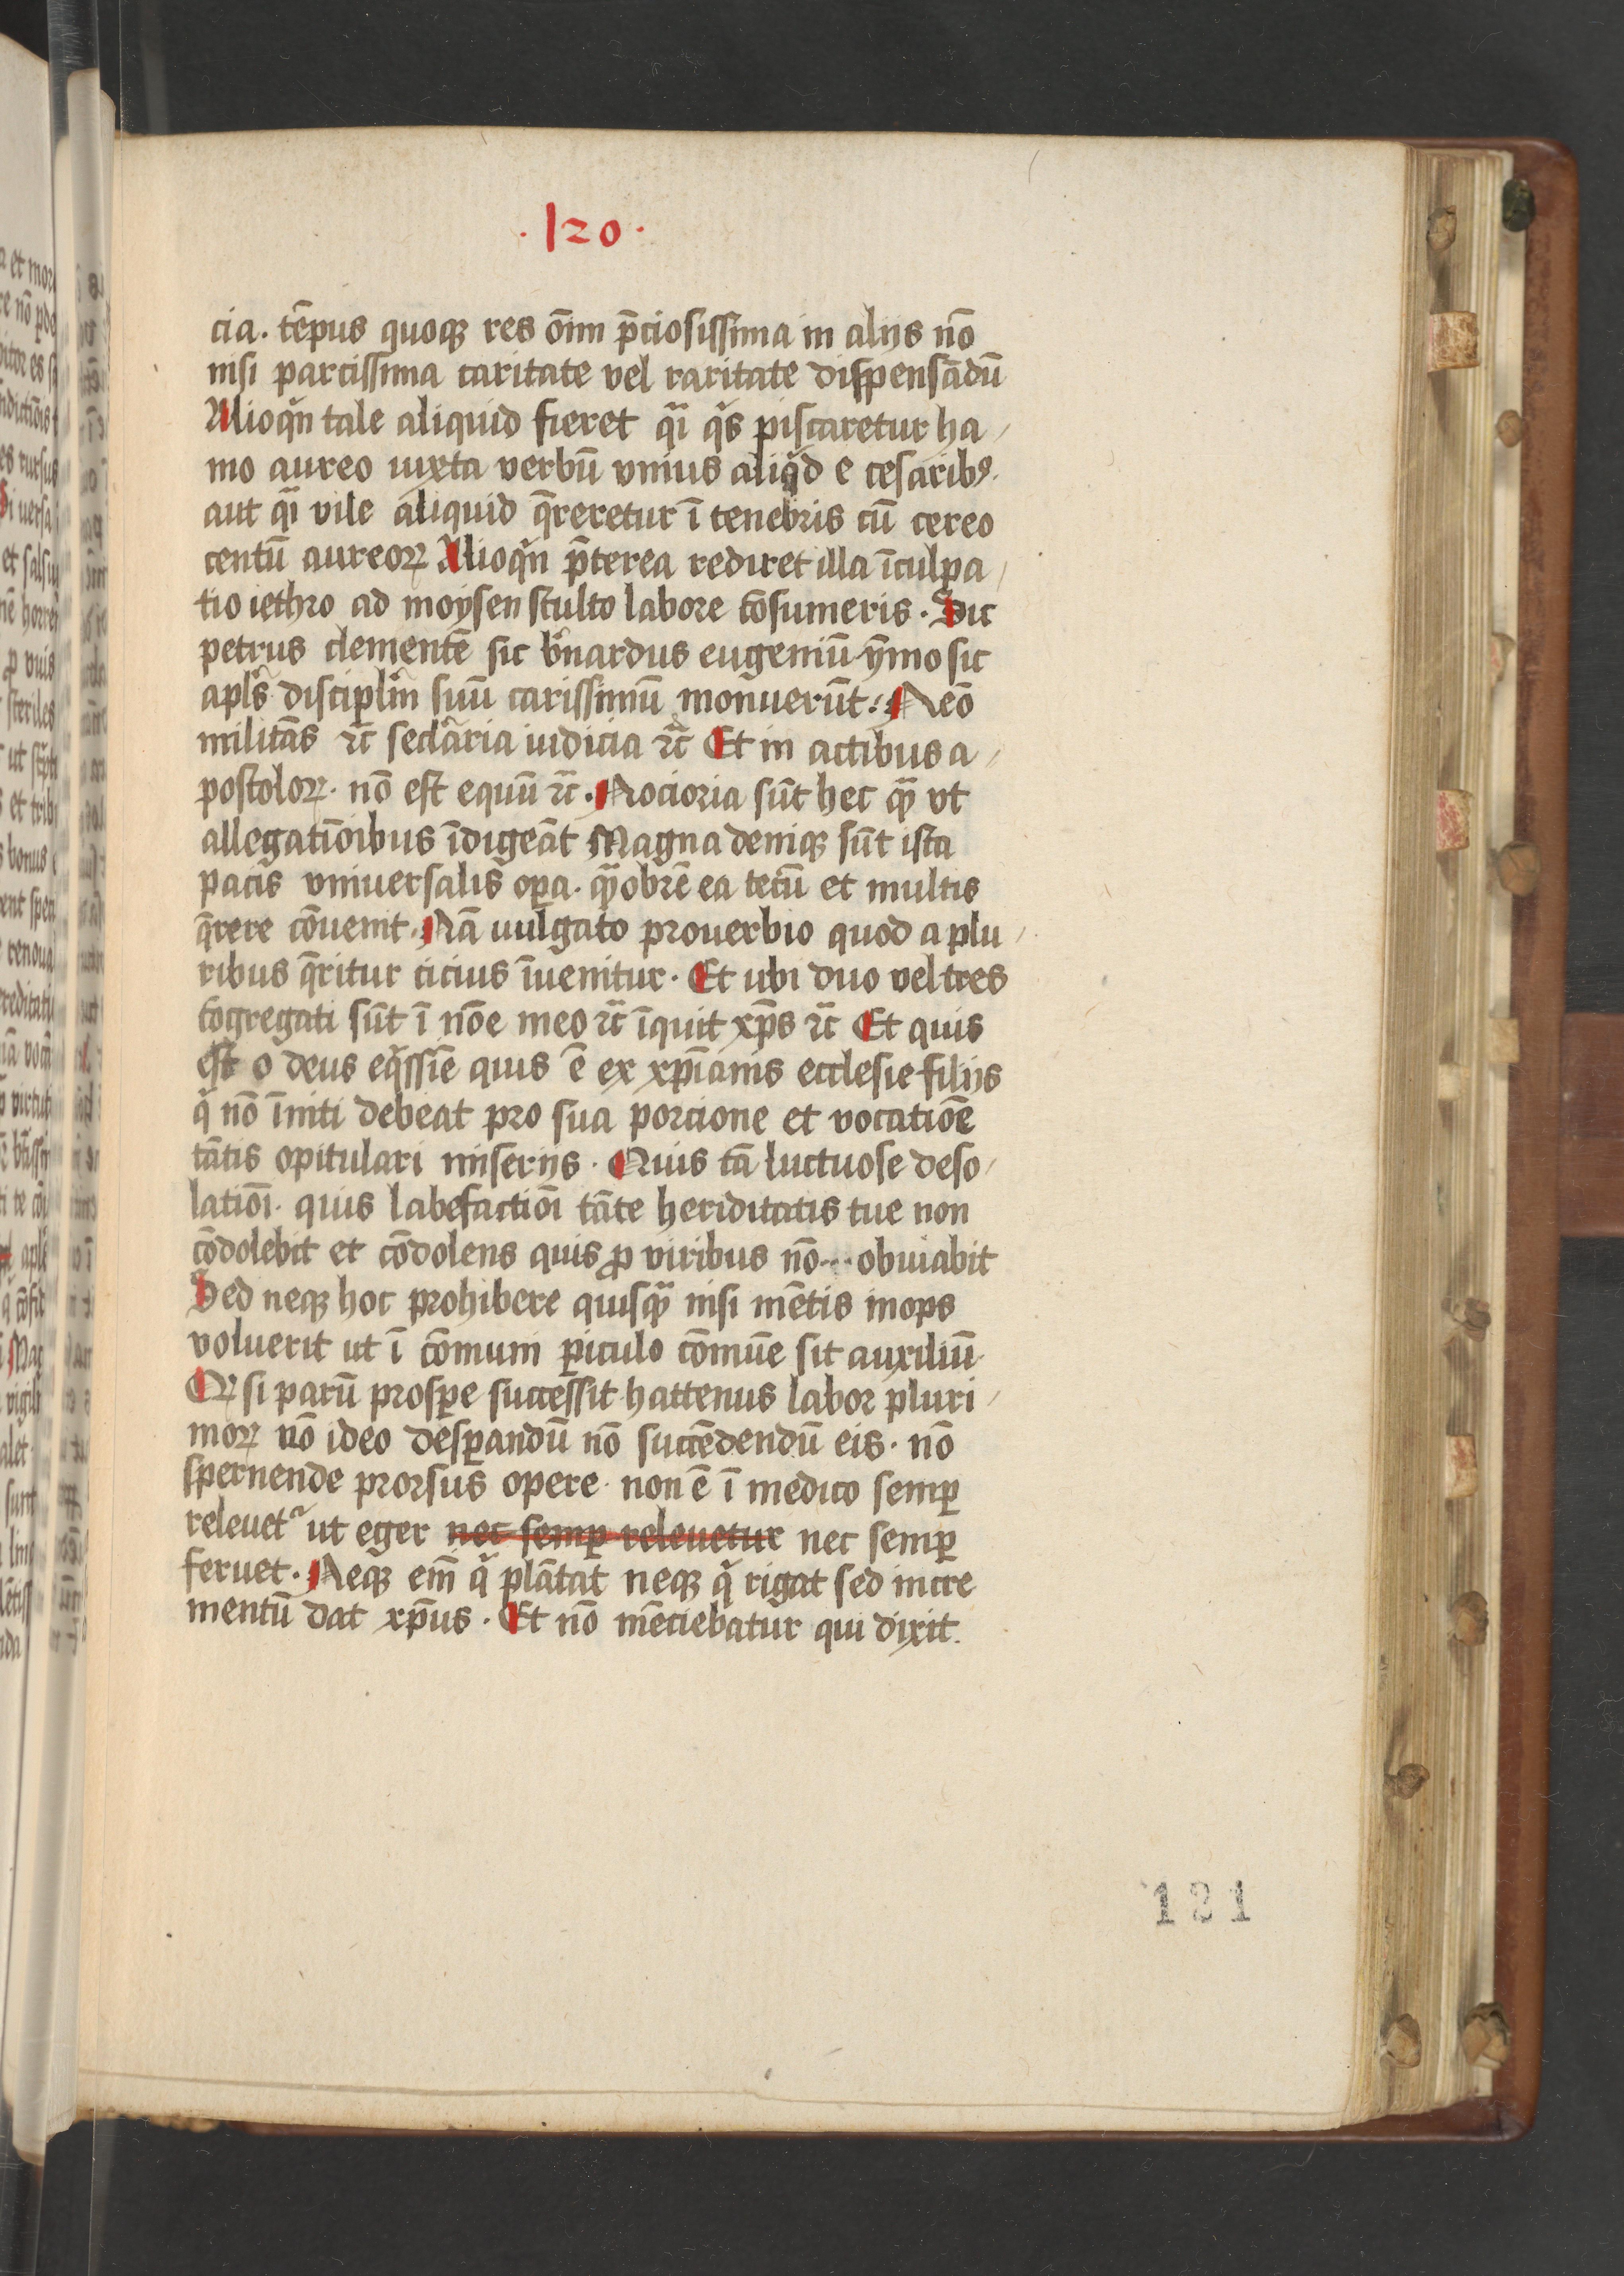 ·120·
cia. tēpus quoqꝫ res oīm p̄ciosissima in alijs nō
nisi parcissima caritate vel raritate dispensādū
Alioqͥn tale aliquid fieret qͣi qͥs piscaretur ha/
mo aureo iuxta verbū vnius aliqͥd e cesaribꝰ.
aut qͣi vile aliquid q̄reretur ī tenebris cū cereo
centū aureoꝝ Alioqͥn p̄terea rediret illa īculpa/
tio iethro ad moysen stulto labore cōsumeris. Sic
petrus clementē sic b̄nardus eugeniū ymo sic
apl̄s discipl̄m suū carissimū monuerūt. Neō
militās ⁊c̄ secl̄aria iudicia ⁊c̄ Et in actibus a/
postoloꝝ. nō est equū ⁊c̄. Nocioria sūt hec qͣꝫ vt
allegatiōibus īdigeāt Magna deniqꝫ sūt ista
pacis vniuersalis oꝑa. qͣꝫobrē ea tecū et multis
q̄rere cōuenit. Nā uulgato prouerbio quod a plu/
ribus q̄ritur cicius īuenitur. Et ubi duo vel tres
cōgregati sūt ī nōe meo ⁊c̄ īquit xp̄s ⁊c̄ Et quis
est o deus eqͥssīe quis ē ex xp̄ianis ecclesie filijs
qͥ nō īniti debeat pro sua porcione et vocatiōe
tātis opitulari miserijs. Quis tā luctuose deso/
latiōi. quis labefactiōi tāte heriditatis tue non
cōdolebit et cōdolens quis ꝓ viribus nō... obuiabit
Sed neqꝫ hoc prohibere quisqͣꝫ nisi mētis inops
voluerit ut ī cōmuni ꝑiculo cōmūe sit auxiliū.
Qꝛ si parū prosꝑe successit hattenus labor pluri/
moꝝ nō ideo desꝑandū nō succēdendū eis. nō
spernende prorsus opere. non ē ī medico semꝑ
releuetᷣ ut eger nec semꝑ releuetur nec semꝑ
feruet. Neqꝫ em̄ qͥ plātat neqꝫ qͥ rigat sed incre
mentū dat xp̄us. Et nō mēciebatur qui dixit.
121